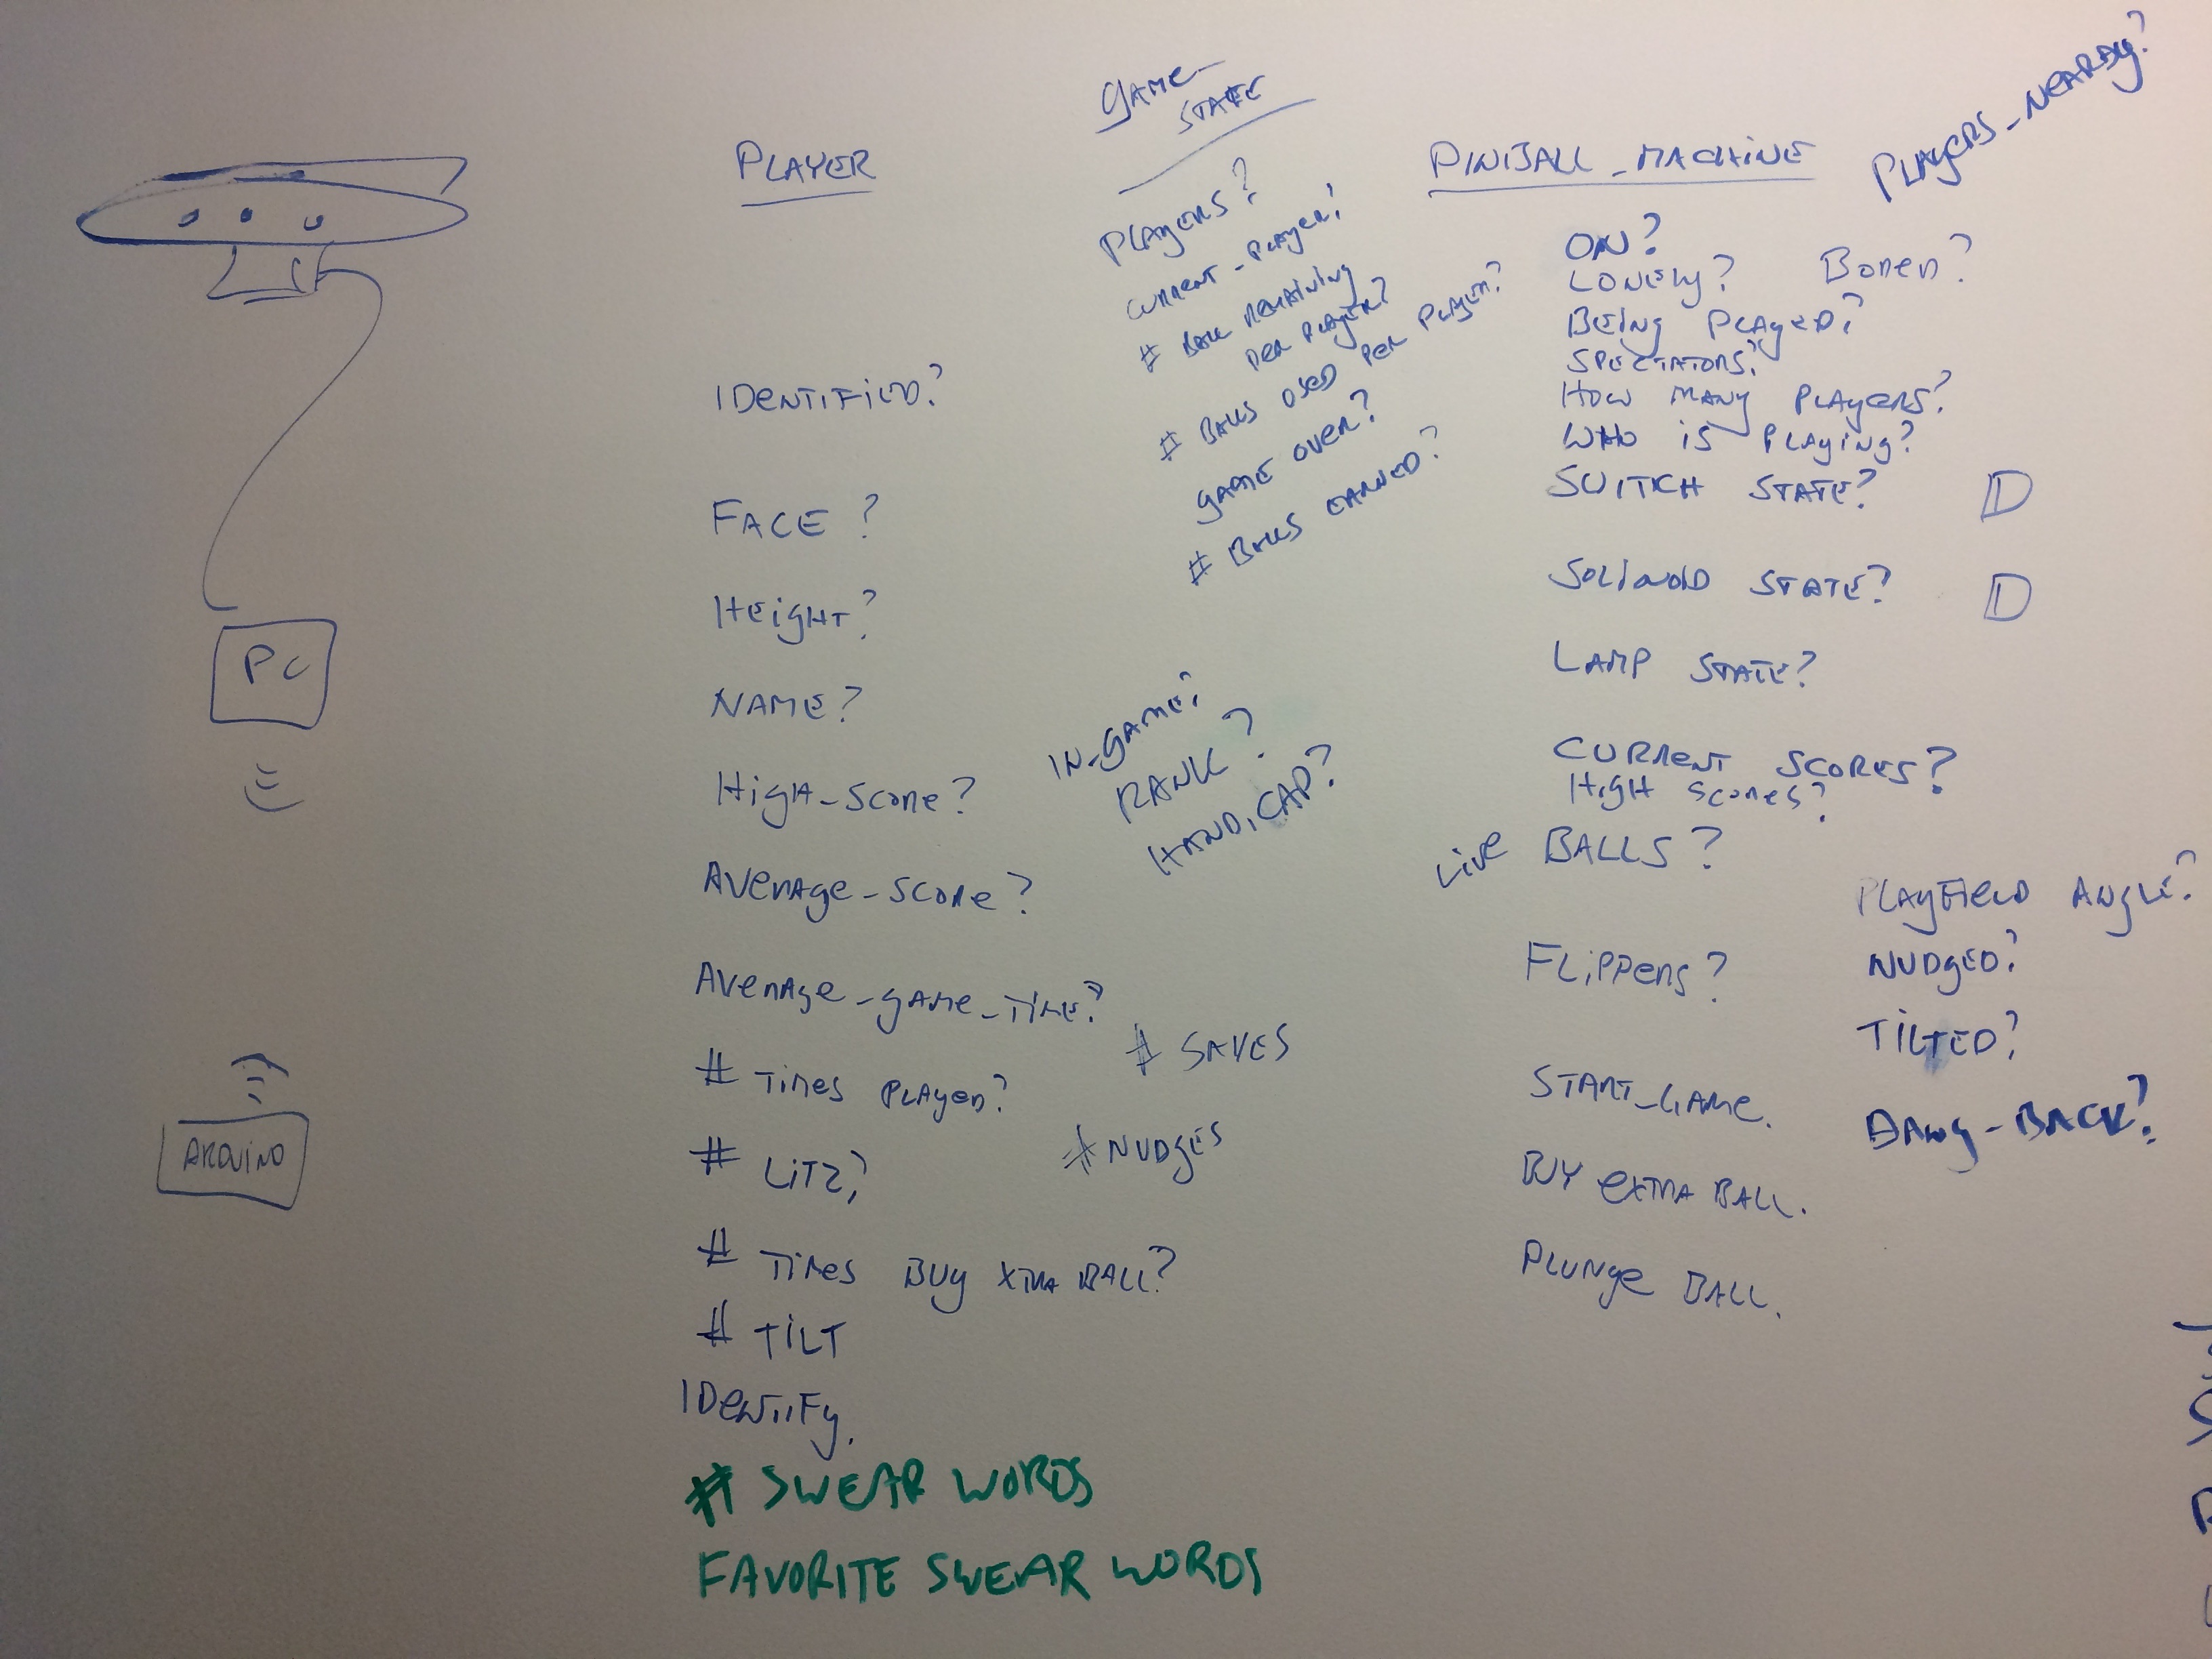 PLAYER
IDENTIFIED?
FACE?
HEIGHT?
NAME?
HIGH-SCORE?
AVERAGE-SCORE?
AVERAGE-GAME-TIME?
# TIMES PLAYED?
# SAVES
# NUDGES
# TIMES BUY XTRA BALL?
# TILT
IDENTIFY.
# SWEAR WORDS
FAVORITE SWEAR WORDS
GAME-STATE
PLAYERS?
CURRENT-PLAYER?
# BALL REMAINING
PER PLAYER?
# BALLS USED PER PLAYER?
GAME OVER?
# BALLS EARNED?
IN-GAME?
RANK?
HANDICAP?
PINBALL-MACHINE
ON?
LONELY? BORED?
BEING PLAYED?
SPECTATORS?
HOW MANY PLAYERS?
WHO IS PLAYING?
SWITCH STATE?
SOLENOID STATE?
LAMP STATE?
CURRENT SCORES?
HIGH SCORES?
LIVE BALLS?
FLIPPERS?
START-GAME.
BUY EXTRA BALL.
PLUNGE BALL.
PLAYERS-NEARBY?
PLAYFIELD ANGLE?
NUDGED?
TILTED?
PC
ARDUINO